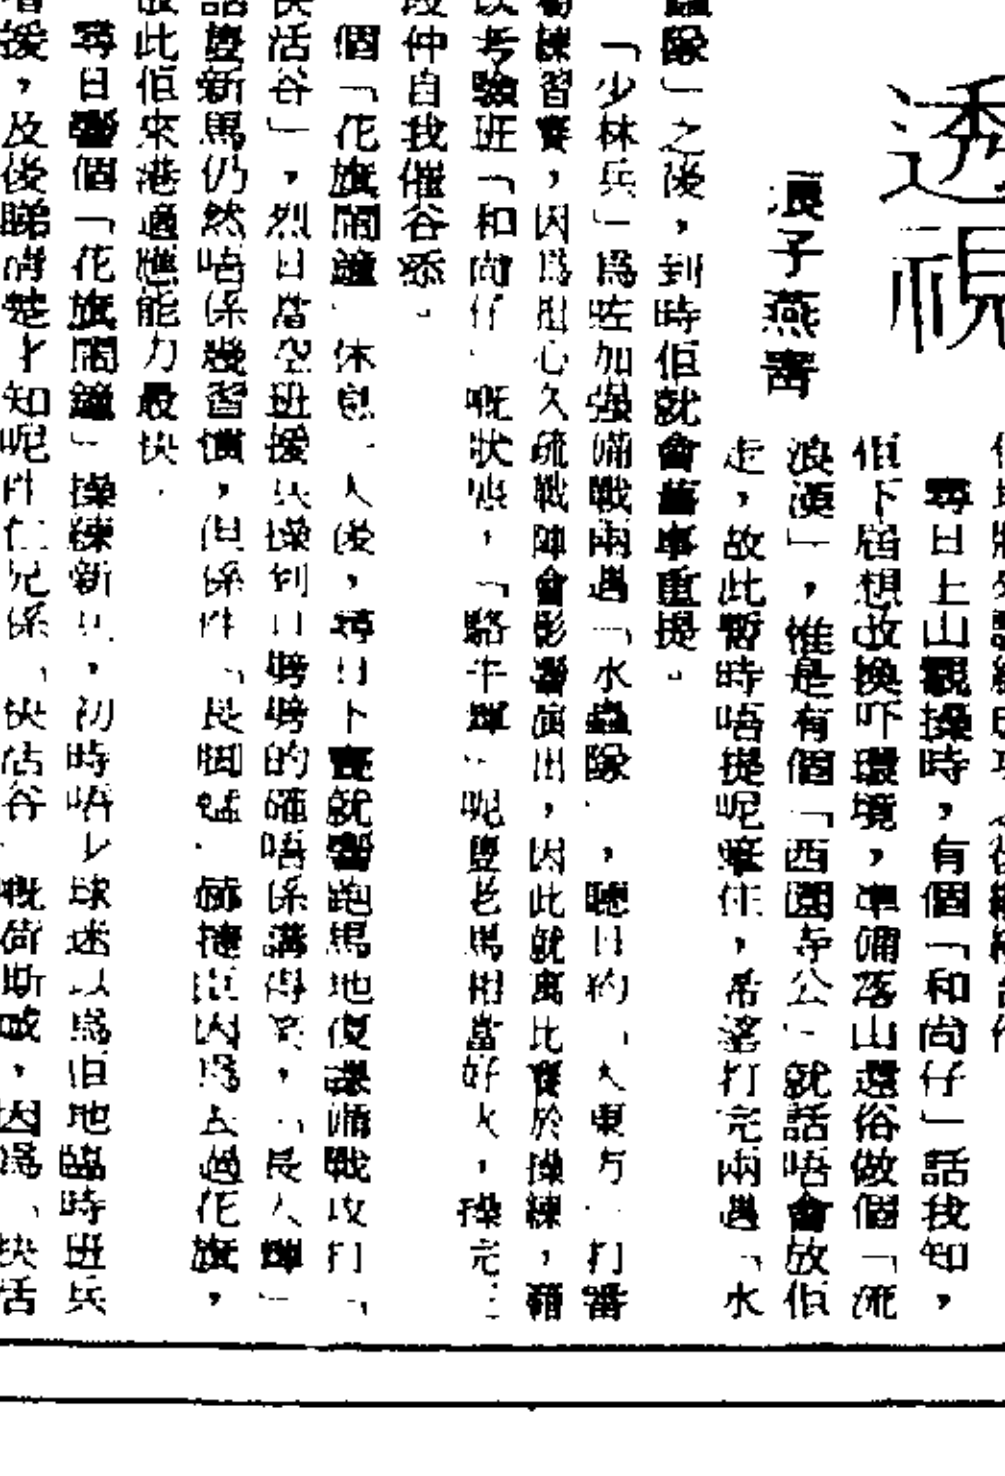 透視
浪子燕靑
尋日上山觀操時，有個「和尚仔」話我知，
佢下屆想改換吓環境，準備落山還俗做個「流
浪漢」，惟是有個「西園寺公」就話唔會放佢
走，故此暫時唔提呢單住，希望打完兩遇「水
蟲隊」之後，到時佢就會舊事重提。
「少林兵」爲咗加强備戰兩遇「水蟲隊」，聽日約「大東方」打番
練習賽，因爲担心久疏戰陣會影響演出，因此就寓比賽於操練，藉
以考驗班「和尚仔」嘅狀態，「駱牛輝」呢豐老馬相當好火，操完
仲自我催谷添。
個「花旗鬧鐘」休息一人後，尋日下晝就響跑馬地復課備戰攻打「
快活谷」，烈日當空班援兵操到口髒髒的確唔係講得笑，「長人輝」
話豐新馬仍然唔係幾習慣，但係件「長脚蜢」
因爲去過花旗，
故此佢來港適應能力最快。
尋日響個「花旗鬧鐘」操練新兵，初時唔少球迷以爲佢地臨時班兵
援，及後睇淸楚才知呢件仁兄係「快活谷」嘅荷斯
，因爲「快活